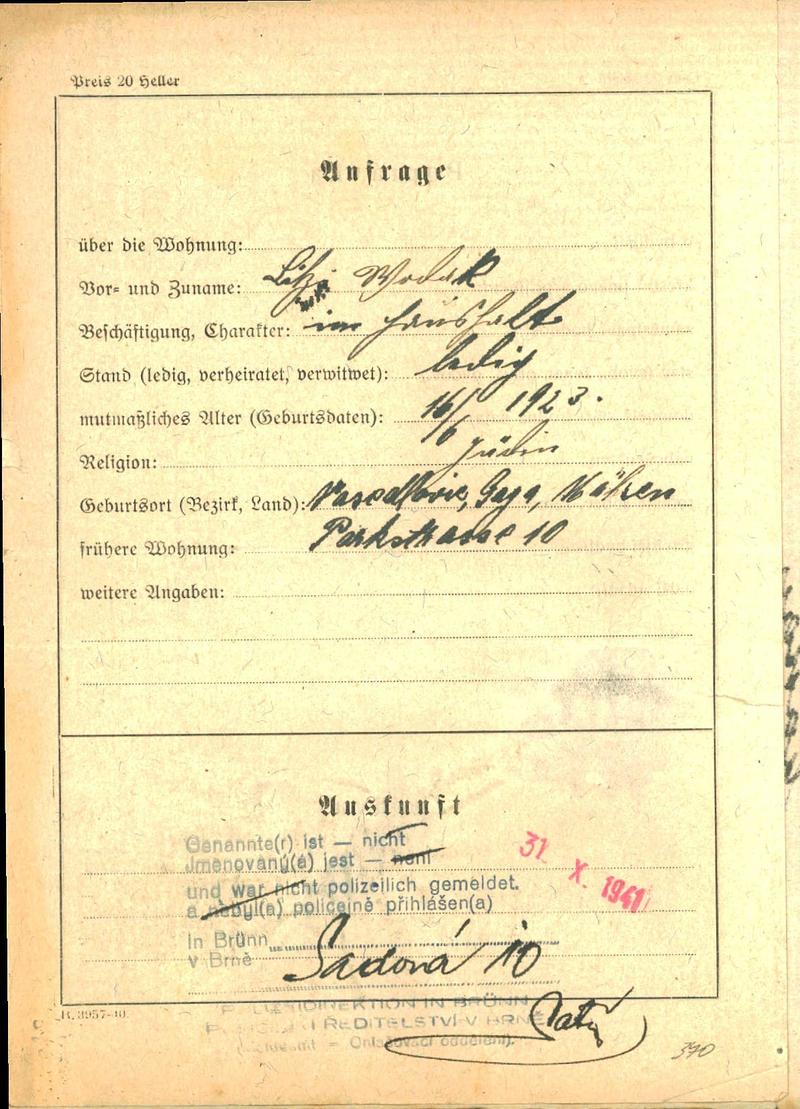 Preis 20 Heller
Anfrage
über die Wohnung:
Vor- und Zuname: Litzi Wodak
Beschäftigung, Charakter: im Haushalt
Stand (ledig, verheiratet, verwitwet): ledig
mutmaßliches Alter (Geburtsdaten): 16/6 1923.
Religion: Jüdin
Geburtsort (Bezirk, Land): Gaya, Mähren
frühere Wohnung: Parkstrasse 10
weitere Angaben:
Auskunft
Genannte(r) ist — nicht
Jmenovaný(á) jest — není
31. X. 1941
und war nicht polizeilich gemeldet.
a nebyl(a) policejně přihlášen(a)
in Brünn
v Brně
Sadová 10
POLIZEIDIREKTION IN BRÜNN
POLICEJNÍ ŘEDITELSTVÍ V BRNĚ
(Meldeamt = Ohlašovací oddělení).
370